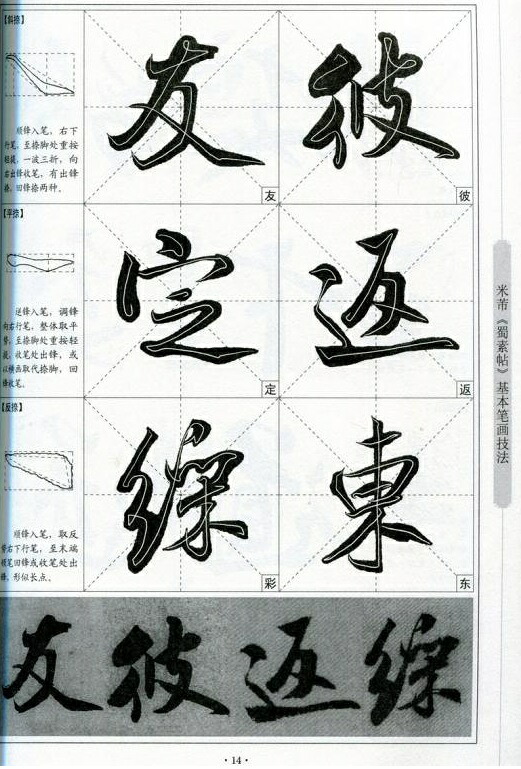 【斜捺】
顺锋入笔，右下
行笔，至捺脚处重按
轻提，一波三折，向
右出锋收笔，有出锋
捺、回锋捺两种。
友 彼
友 彼
【平捺】
逆锋入笔，调锋
向右行笔，整体取平
势，至捺脚处重按轻
提，收笔处出锋，或
以横画取代捺脚，回
锋收笔。
定 返
定 返
【反捺】
顺锋入笔，取反
势右下行笔，至末端
顿笔回锋或收笔处出
锋，形似长点。
東
彩 东
友 彼 返
米芾《蜀素帖》基本笔画技法
·14·